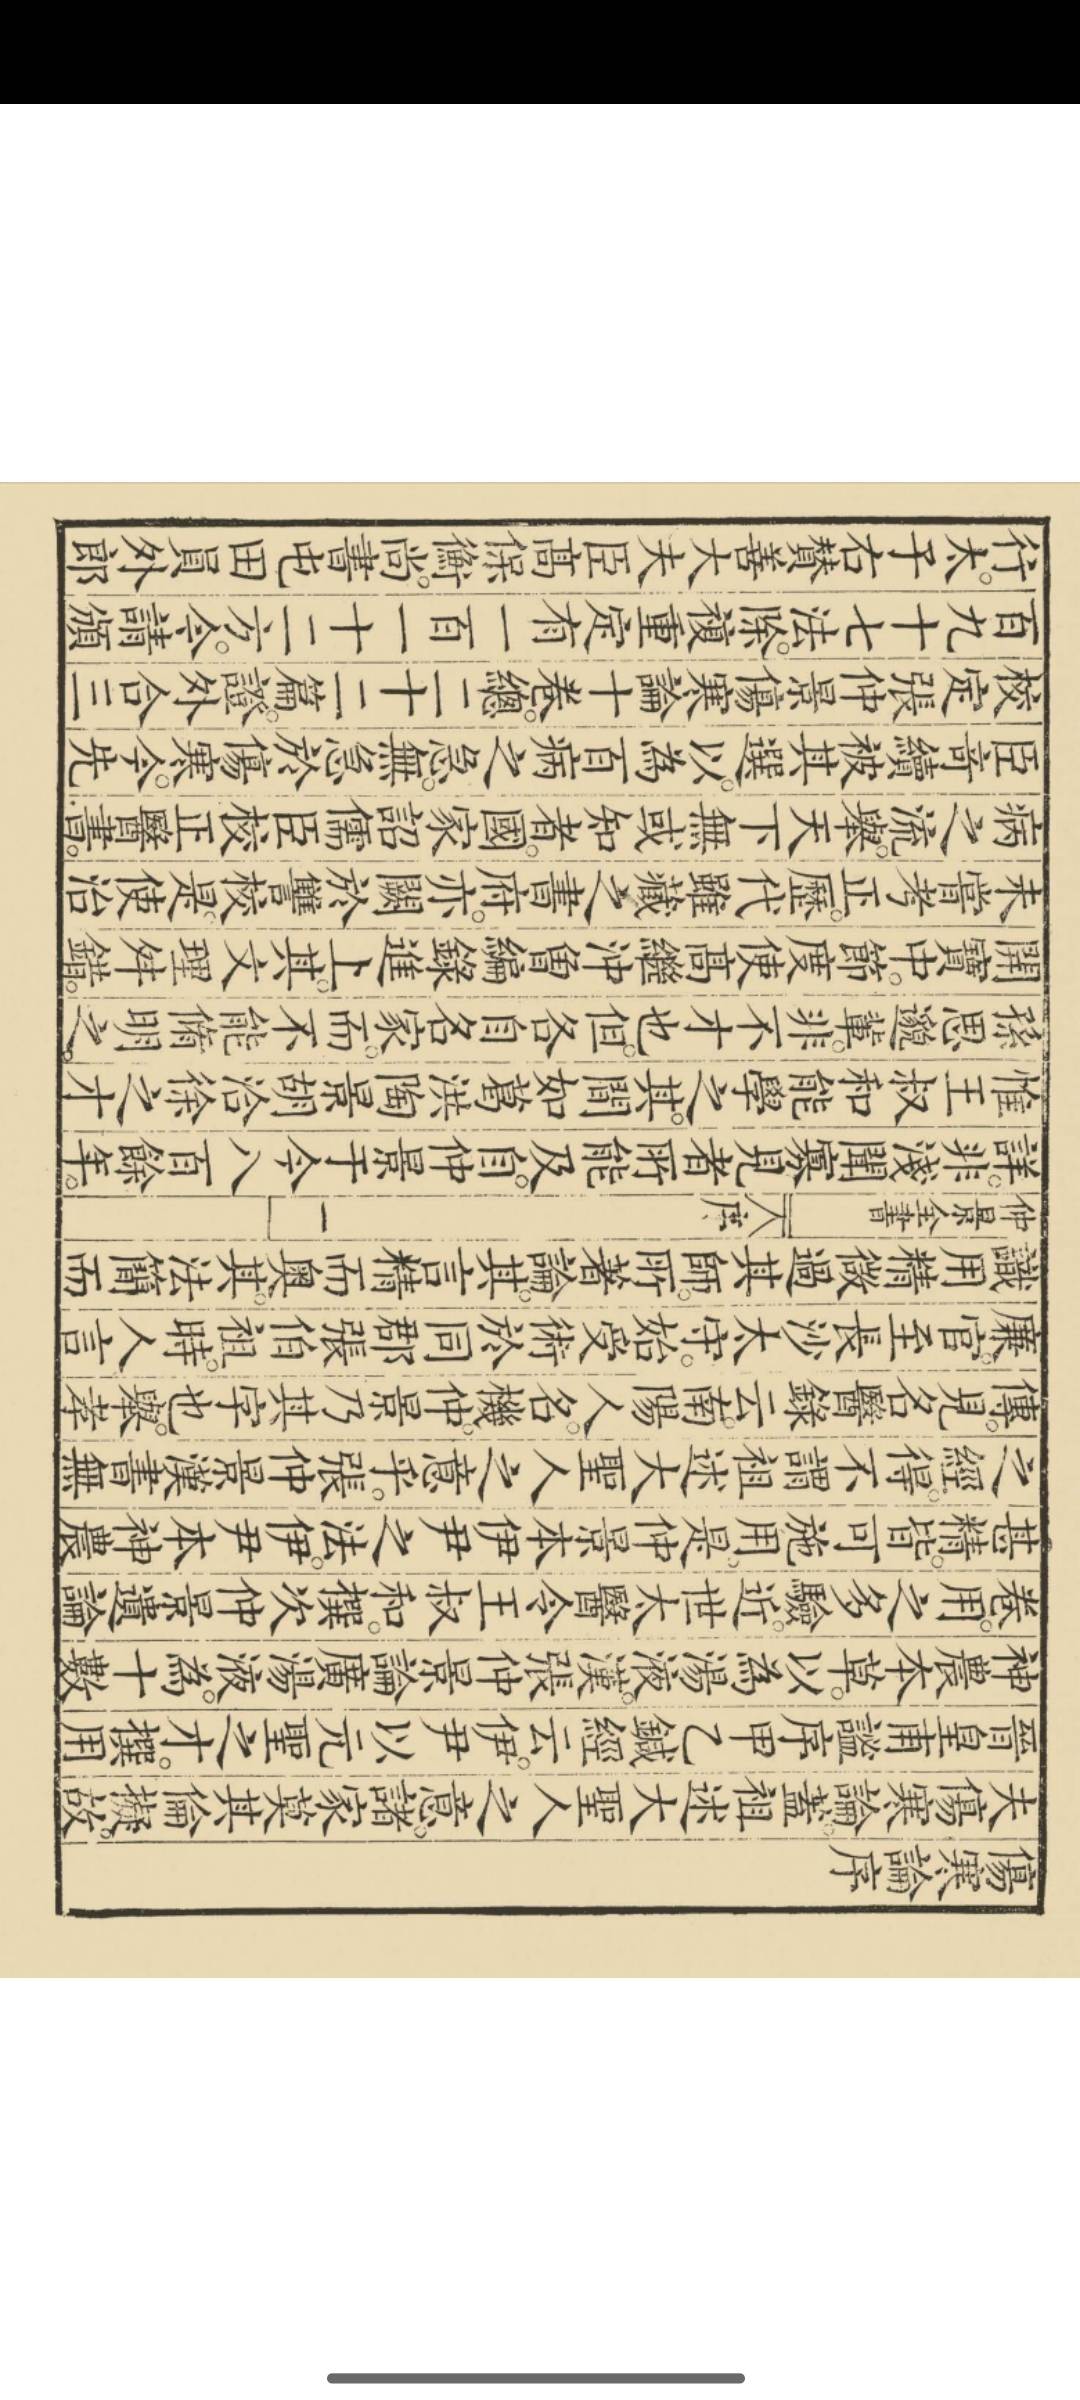 傷寒論序
夫傷寒論蓋祖述大聖人之意。諸家莫其倫擬。故
晉皇甫謐序甲乙鍼經云。伊尹以元聖之才。撰用
神農本草。以為湯液。漢張仲景論廣湯液。為十數
卷。用之多驗。近世太醫令王叔和。撰次仲景遺論
甚精。皆可施用。是仲景本伊尹之法。伊尹本神農
之經。得不謂祖述大聖人之意乎。張仲景漢書無
傳。見名醫錄云。南陽人。名機。仲景乃其字也。舉孝
廉。官至長沙太守。始受術於同郡張伯祖。時人言
識用精微過其師。所著論。其言精而奧。其法簡而
仲景全書 序 一
詳。非淺聞寡見者所能及。自仲景于今八百餘年。
惟王叔和能學之。其間如葛洪陶景胡洽徐之才
孫思邈輩。非不才也。但各自名家。而不能脩明之。
開寶中。節度使高繼沖曾編錄進上。其文理舛錯。
未嘗考正。歷代雖藏之書府。亦闕於讐校。是使治
病之流。舉天下無或知者。國家詔儒臣校正醫書。
臣奇續被其選。以為百病之急。無急於傷寒。今先
校定張仲景傷寒論十卷。總二十二篇。證外合三
百九十七法。除複重定有一百一十二方。今請頒
行。太子右贊善大夫臣高保衡。尚書屯田員外郎